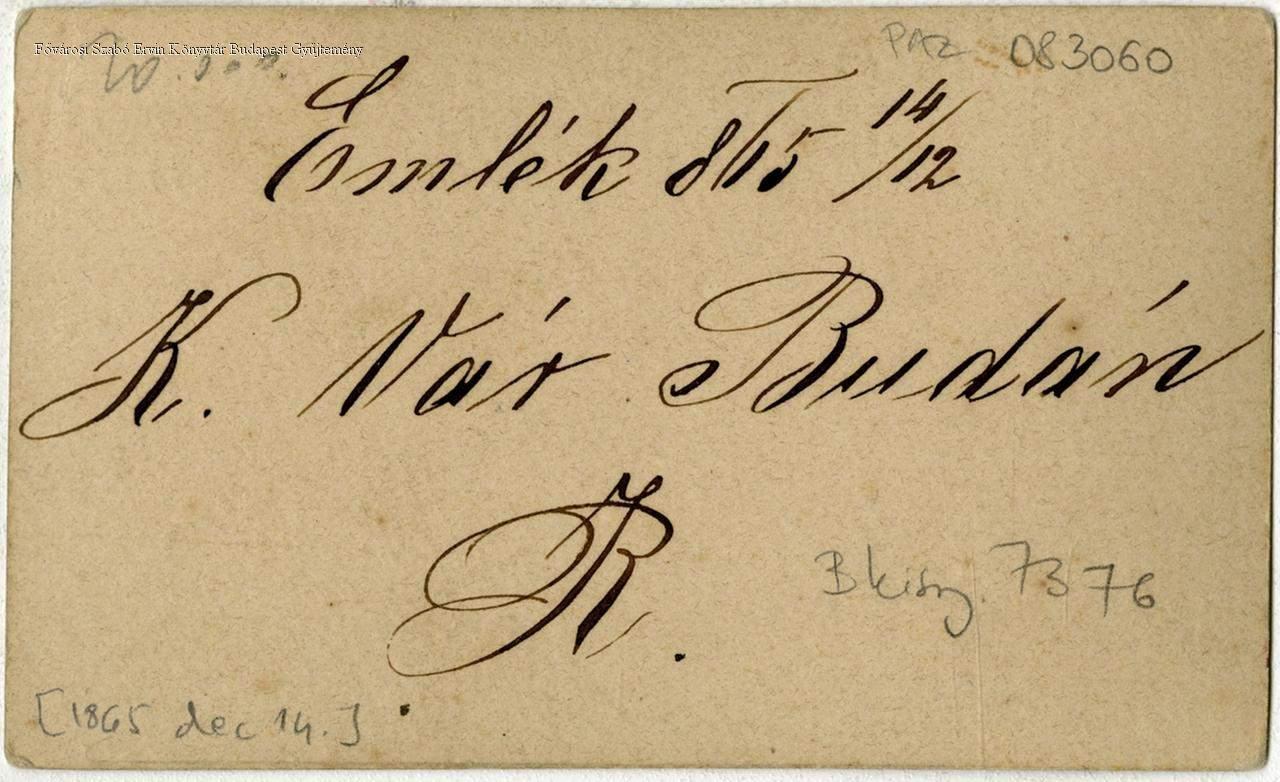 Fővárosi Szabó Ervin Könyvtár Budapest Gyűjtemény
PAZ 083060
Emlék 865 14/12
K. Vár Budán
R.
B kisz. 7376
[1865 dec 14.]